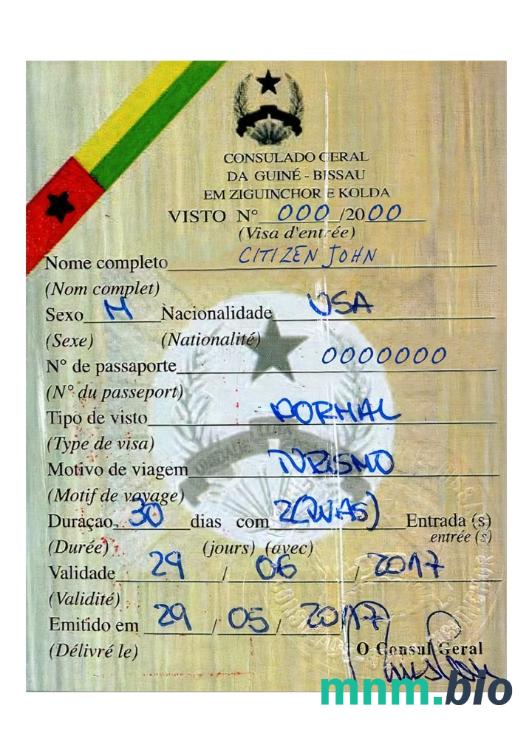 CONSULADO GERAL
DA GUINÉ - BISSAU
EM ZIGUINCHOR E KOLDA
VISTO N° 000 /2000
(Visa d'entrée)
Nome completo CITIZEN JOHN
(Nom complet)
Sexo M Nacionalidade USA
(Sexe) (Nationalité)
N° de passaporte 0000000
(N° du passeport)
Tipo de visto NORMAL
(Type de visa)
Motivo de viagem TURISMO
(Motif de voyage)
Duraçao 30 dias com 2(DUAS) Entrada (s)
(Durée) (jours) (avec) entrée (s)
Validade 29 / 06 / 2017
(Validité)
Emitido em 29 / 05 / 2017
(Délivré le) O Consul Geral
mnm.bio